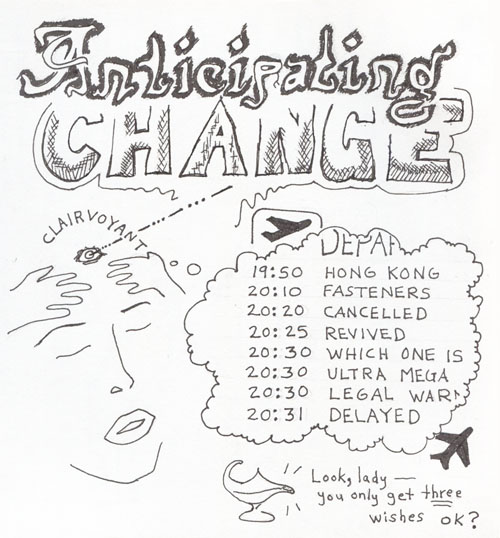 Anticipating
CHANGE
CLAIRVOYANT
DEPAR
19:50 HONG KONG
20:10 FASTENERS
20:20 CANCELLED
20:25 REVIVED
20:30 WHICH ONE IS
20:30 ULTRA MEGA
20:30 LEGAL WARN
20:31 DELAYED
Look, lady —
you only get three
wishes OK?